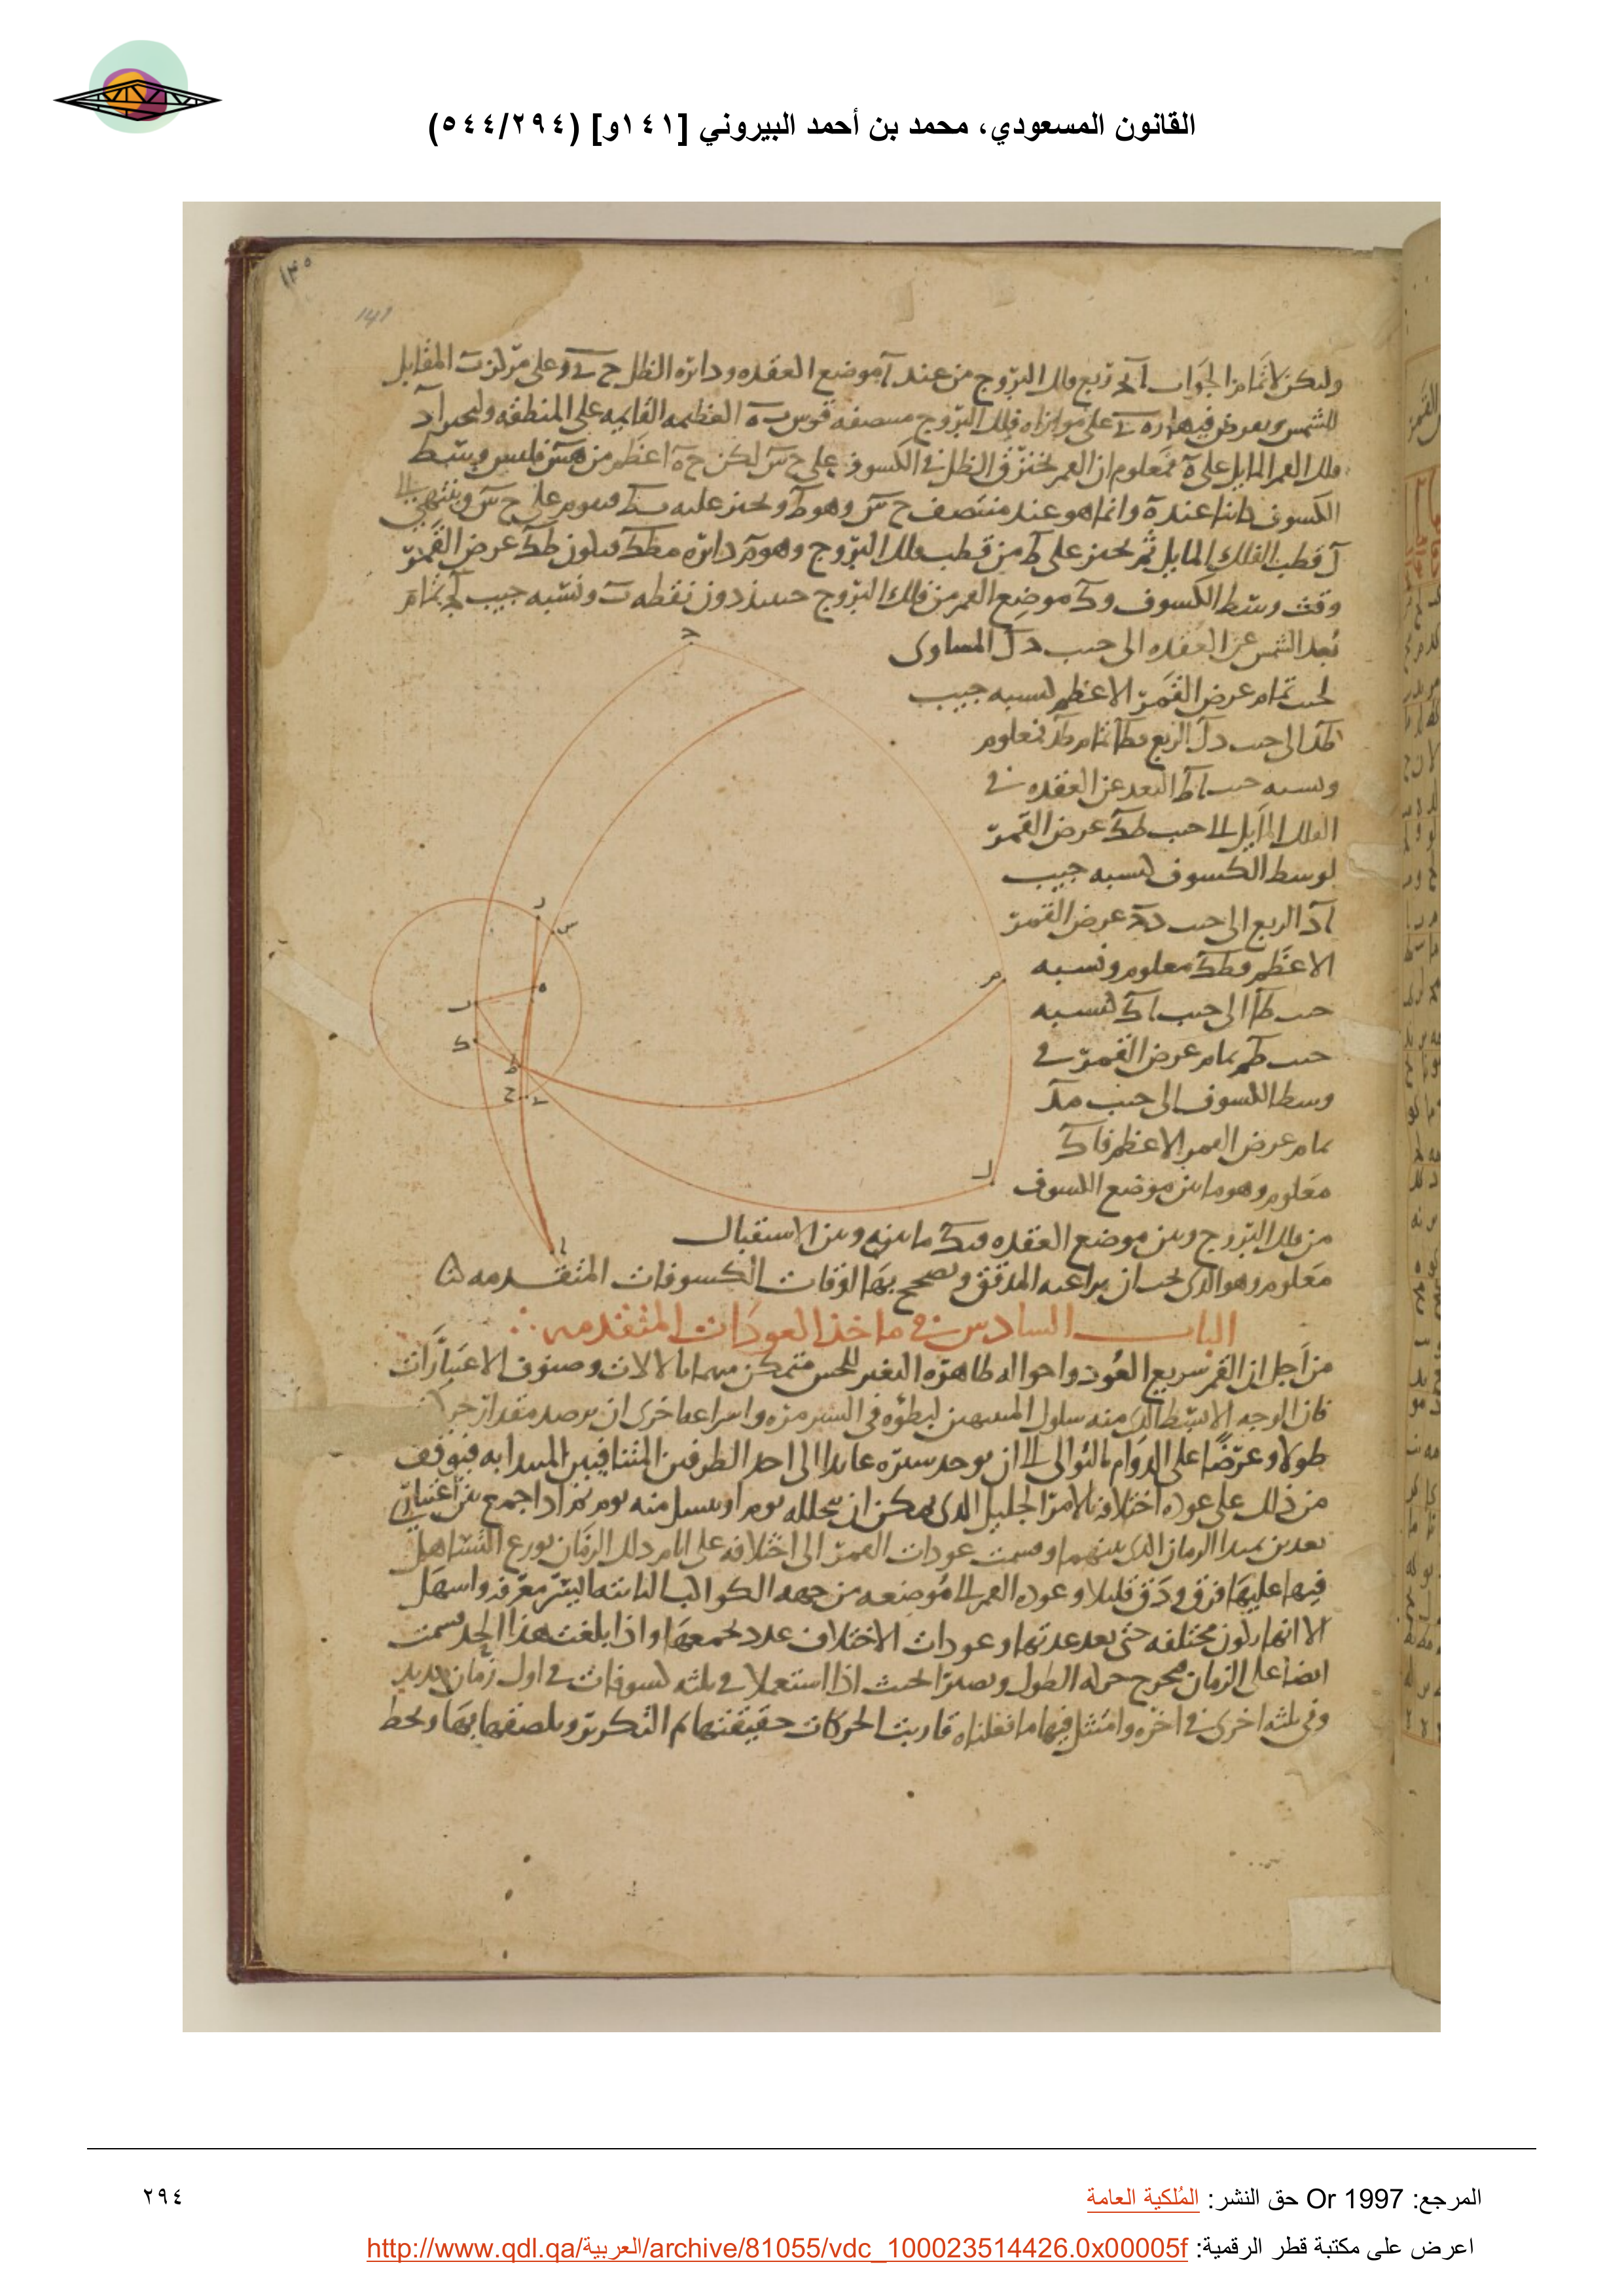 القانون المسعودي، محمد بن أحمد البيروني [١٤١و] (٥٤٤/٢٩٤)
١٣٥
141
وليكن لاتمام الجواب اٮح ربع فلك البروج من عند آ موضع العقدة ودائرة الظل ح ر وعلى مركز ب المقابل
للشمس ويعرض فيها على موازاة فلك البروج منصفه قوس ب ه العظيمة القايمة على المنطقة وليجز ا د
فلك القمر المايل على ه فمعلوم ان القمر يخترق الظل في الكسوف على ح س لكن ح ه اعظم من ه س فليس وسط
الكسوف كاينا عند ه وانما هو عند منتصف ح س وهو ط ونجيز عليه ب ط فيقوم على ح س وينتهي الى
ل قطب الفلك المايل ثم نجيز على ط من قطب فلك البروج وهو م دائرة م ط ك فيكون ط ك عرض القمر
وقت وسط الكسوف و ك موضع القمر من فلك البروج حينئذ دون نقطة ب ونسبة جيب تمام
بعد الشمس عن العقدة الى جيب د ل المساوى
لجيب تمام عرض القمر الاعظم كنسبة جيب
ط د الى جيب د ل الربع و ط ا تمام ط د فمعلوم
ونسبة جيب ا ط البعد عن العقدة في
الفلك المايل الى جيب ط ك عرض القمر
لوسط الكسوف كنسبة جيب
ا د الربع الى جيب د ح عرض القمر
الاعظم و ط ك معلوم ونسبة
جيب ط ا الى جيب ا ك كنسبة
جيب ط م تمام عرض القمر في
وسط الكسوف الى جيب م ل
تمام عرض القمر الاعظم فا ك
معلوم وهو ما بين موضع الكسوف
من فلك البروج وبين موضع العقدة و ب ك ما بينه وبين الاستقبال
معلوم وهو الذى يجب ان يراعيه المدقق ويصحح بها اوقات الكسوفات المتقدمة
الباب السادس في ماخذ العودات المتقدمة
من اجل ان القمر سريع العود واحواله ظاهرة التغير للحس متمكن منها بالالات وصنوف الاعتبارات
فان الوجه الابسط الذى منه سلوك لبطؤه في السير مرة واسراعه اخرى ان يرصد مقدار
طولا وعرضا على الدوام بالتوالى الى ان يوجد سيره عايدا الى احد الطرفين المتنافيين المبدا به فيوقف
من ذلك على عودة اختلافه بالامر الجليل الذى يمكن ان يتخلله يوم او منه يوم ثم اذا جمع بين اعتبارين
بعد بين الزمان الذى بينهما وقسمت عودات القمر الى اختلافه على ايام ذلك الزمان توزع التساهل
فيها عليها فرق ودق قليلا وعودة القمر الى موضعه من جهة الكواكب الثابتة ايسر معرفة واسهل
الا انها تكون مختلفة حتى بعد عدتها وعودات الاختلاف عدد يجمعها واذا بلغت هذا الحد قسمت
ايضا على الزمان فتخرج حركة الطول وتصير بحيث اذا استعملا في ثلثة كسوفات في اول زمان مديد
وفي ثلثة اخرى في اخره وامتثل فيها ما فعلناه قاربت الحركات حقيقتها ثم التكرير ويلصقها بها ويحط
ح
ر
س
ه
ب
ك
ط
ح
م
ل
ا
المرجع: Or 1997 حق النشر: المُلكية العامة
٢٩٤
اعرض على مكتبة قطر الرقمية: http://www.qdl.qa/العربية/archive/81055/vdc_100023514426.0x00005f